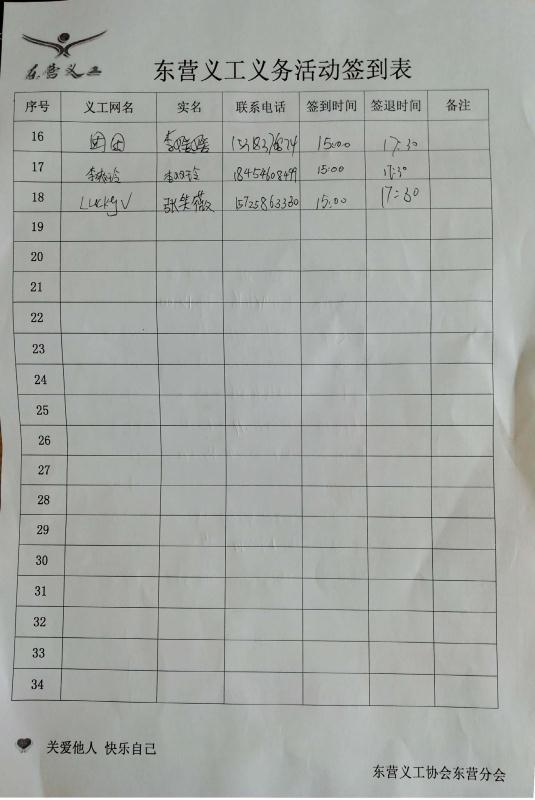 东营义工
东营义工义务活动签到表
序号 义工网名 实名 联系电话 签到时间 签退时间 备注
16 团团 15:00 17:30
17 李晓玲 18454608499 15:00 17:30
18 LuckyV 张笑薇 15725863330 15:00 17:30
19
20
21
22
23
24
25
26
27
28
29
30
31
32
33
34
关爱他人 快乐自己
东营义工协会东营分会